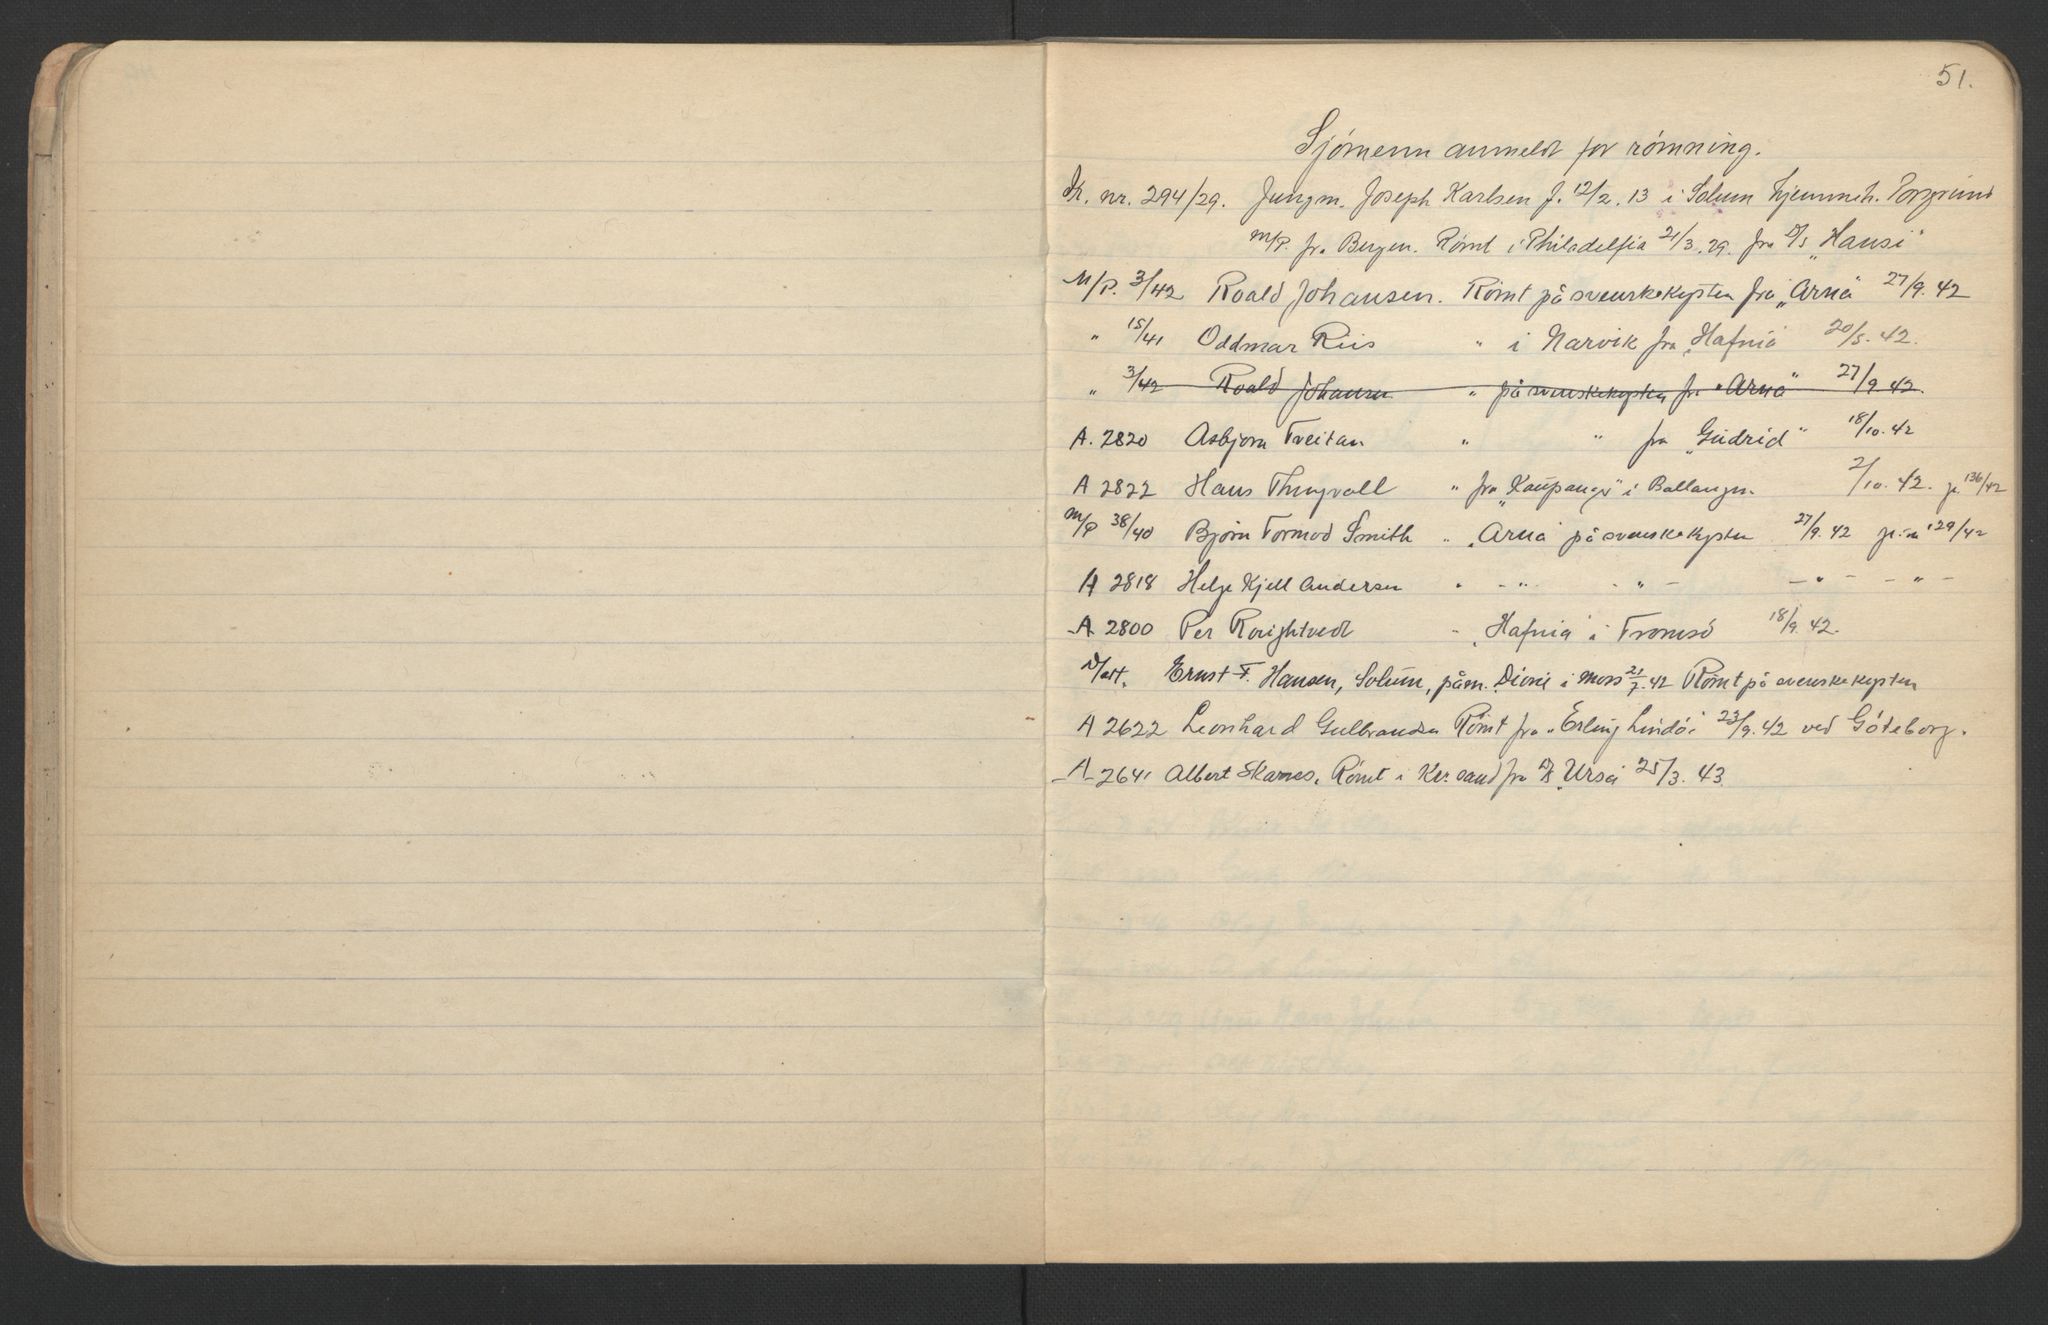 51.
Sjömenn anmeldt for römning.
K. nr. 294/29. Jungm. Joseph Karlsen f. 12/2. 13 i Solum hjemmeh. Porsgrund
m/P. fr. Bergen. Römt i Philadelfia 21/3. 29. fra D/S „Hansi"
M/P. 3/42 Roald Johansen. Römt på svenskekysten fra „Arna" 27/9. 42
" 15/41 Oddmar Riis " i Narvik fra „Hafnia" 20/5. 42.
" 3/42 Roald Johansen " på svenskekysten fra "Arna" 27/9 42.
A. 2820 Asbjørn Treitan " " fra „Gudrid" 18/10. 42
A 2822 Hans Thngvall " fra „Kaupanger" i Ballangen 2/10. 42. j. 136/42
m/P 38/40 Bjørn Tormod Smith " „Arna" på svenskekysten 27/9. 42 j. 129/42
A 2818 Helge Kjell Andersen " - " - - " - - " - - " -
A 2800 Per Rorightvedt " „Hafnia" i Tromsö 18/9. 42.
Ernst F. Hansen, Solum, påm. Dione i Moss 21/7. 42 Römt på svenskekysten
A 2622 Leonhard Gulbrandsen Römt fra „Erling Lindöi 23/9. 42 ved Göteborg.
A 2641 Albert Skarnes. Römt i Kr. sand fra D/S „Ursa" 25/3. 43.